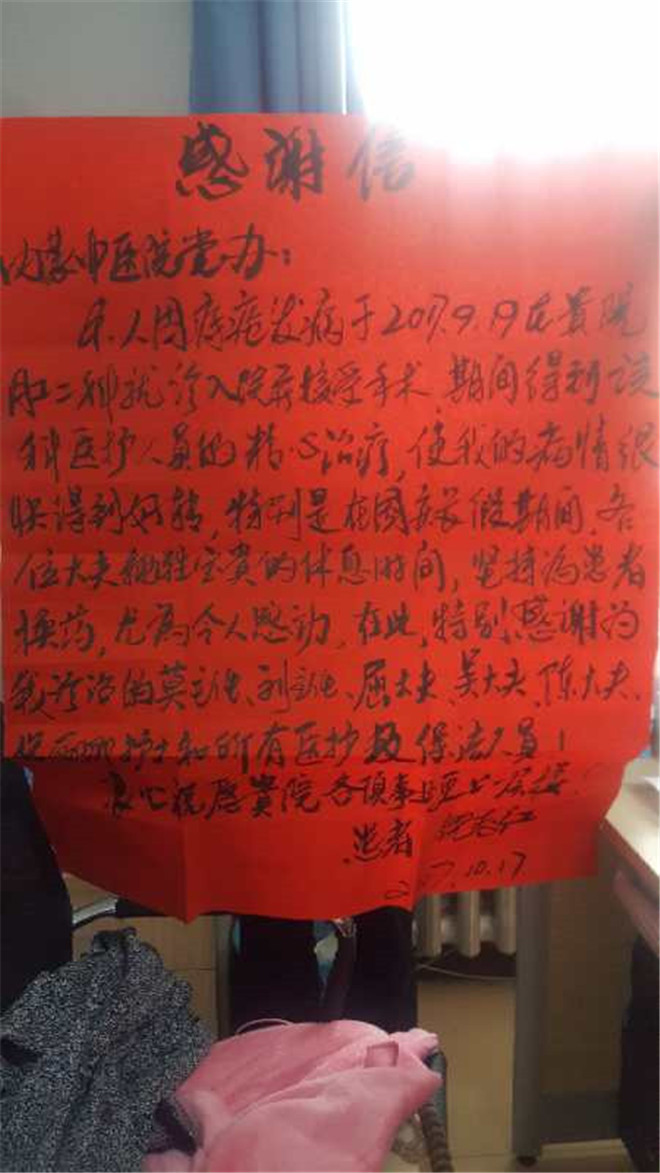 感谢信
内蒙中医院党办：
本人因痔疮发病于2017.9.19在貴院
肛二科就诊入院并接受手术.期间得到该
科医护人员的精心治疗,使我的病情很
快得到好转,特别是在國庆长假期间.各
位大夫牺牲宝貴的休息时间,坚持为患者
换药,尤为令人感动.在此,特别感谢为
我诊治的莫主任、刘主任、屈大夫、吴大夫、陈大夫、
护士和所有医护及保洁人员!
衷心祝愿貴院各项事业更上一层楼!
患者
2017.10.17